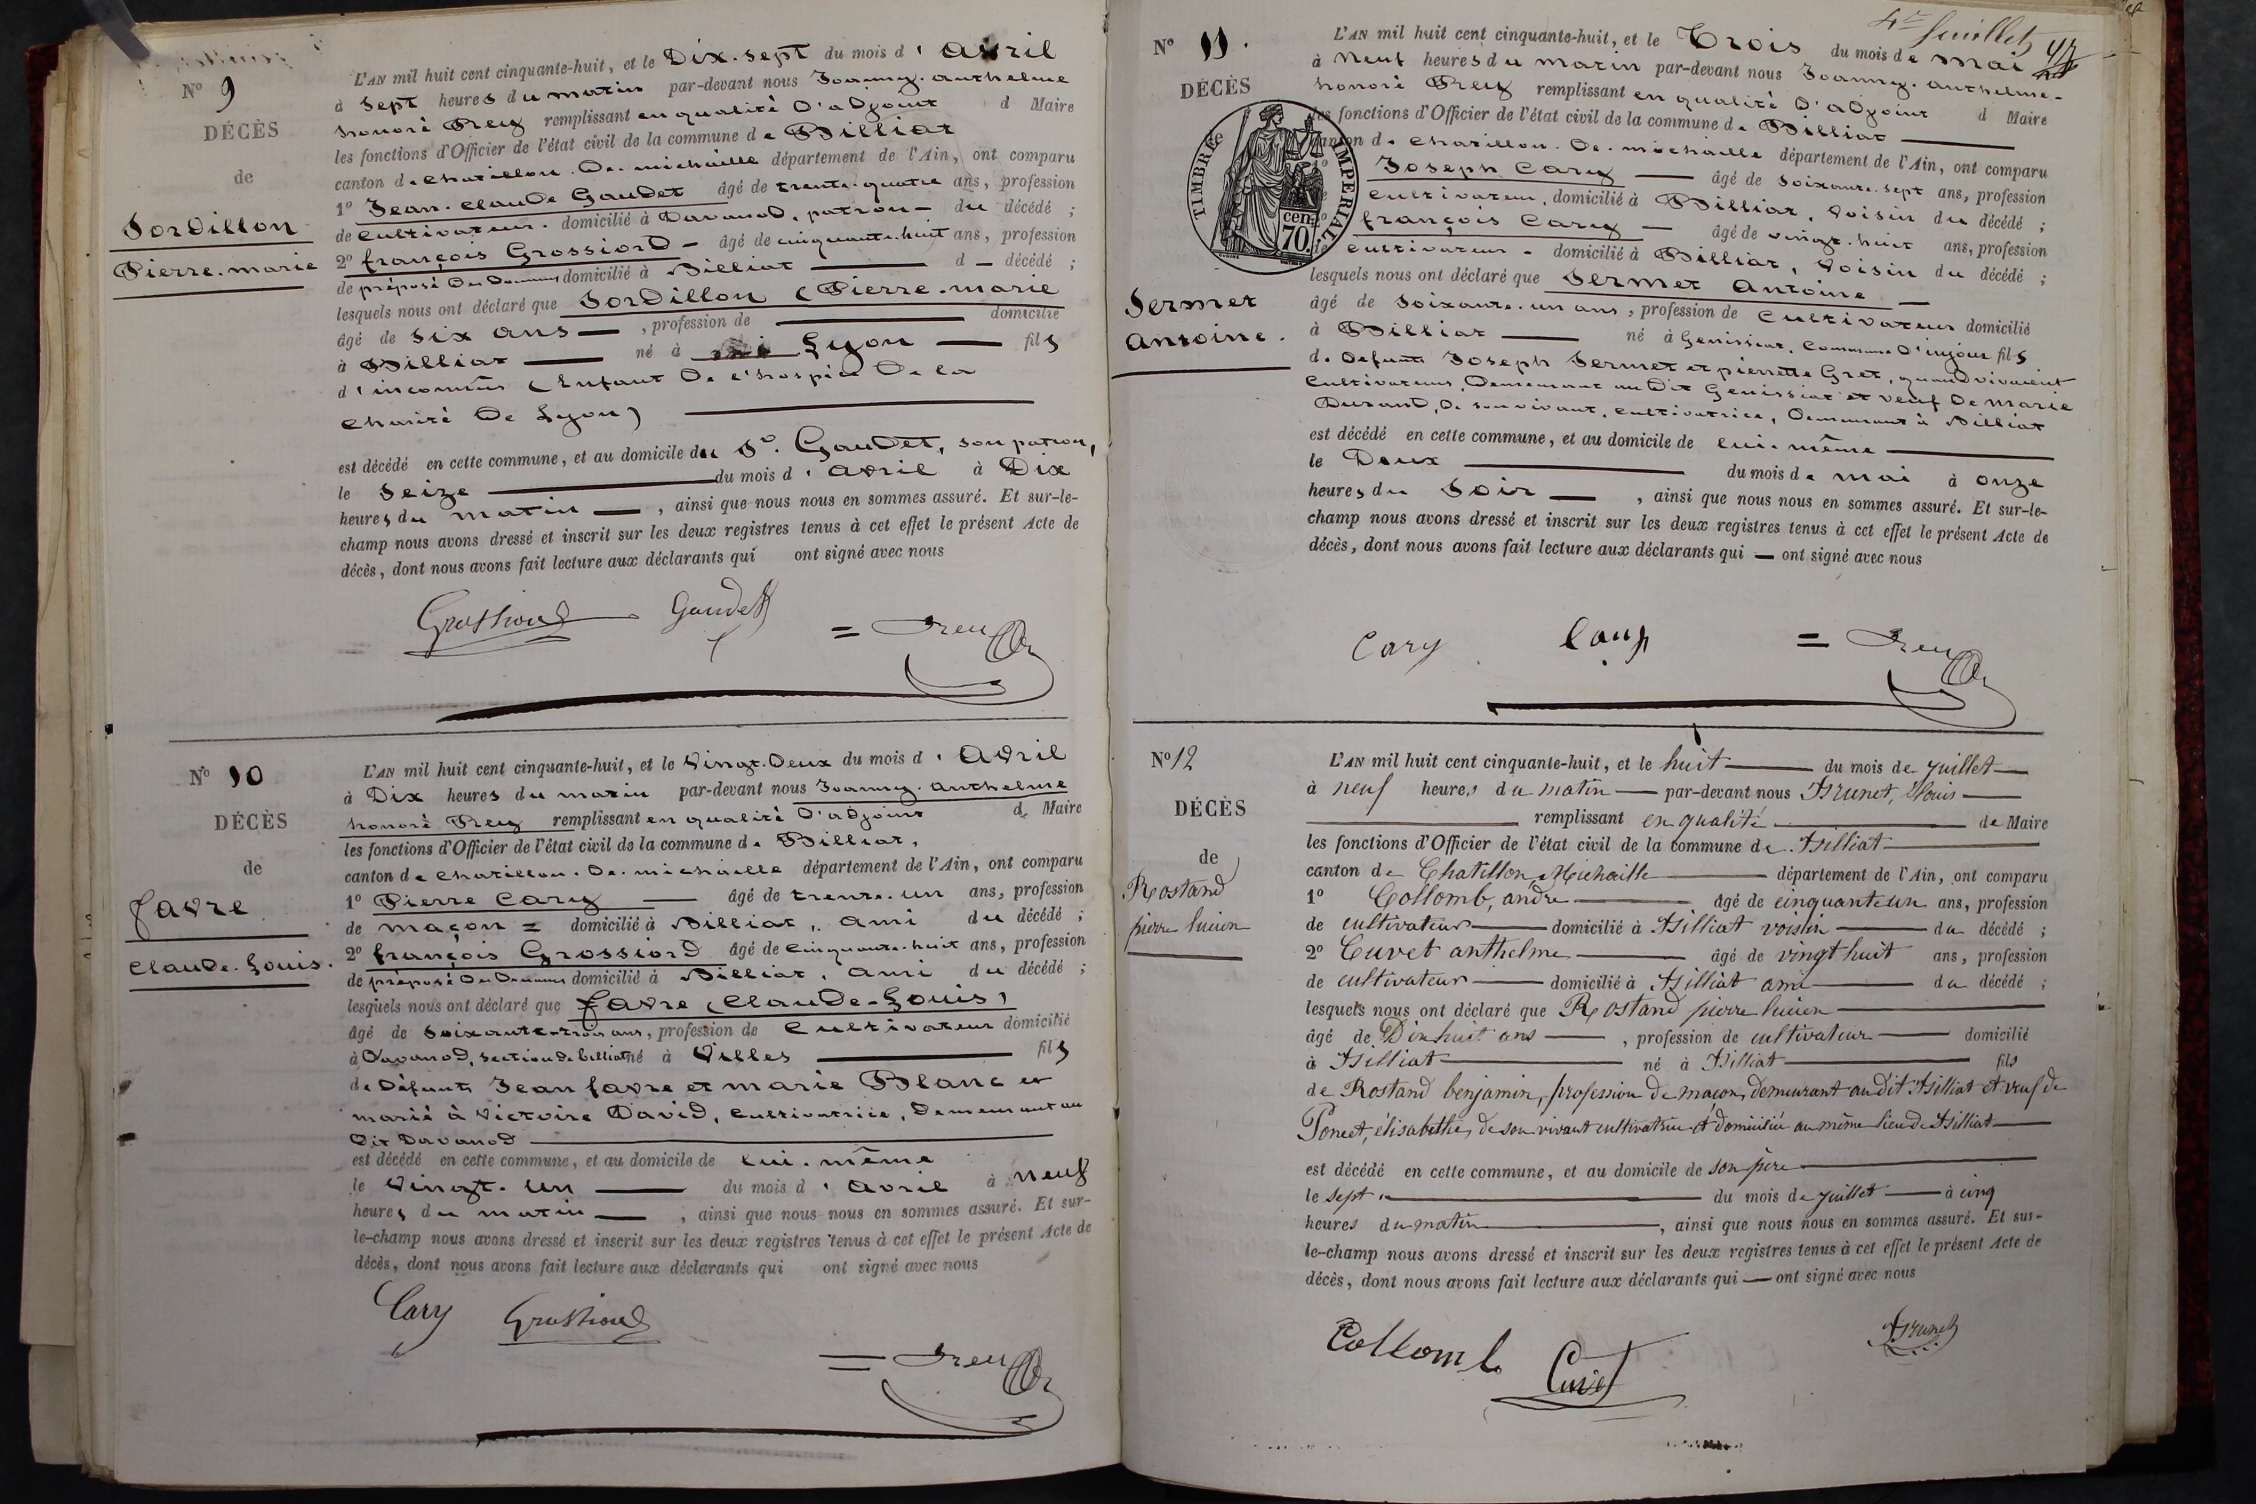 N° 9
DÉCÈS
de
Sordillon
Pierre-marie
L'AN mil huit cent cinquante-huit, et le Dix-sept du mois d'avril
à sept heures du matin par-devant nous Joanny-anthelme
honoré Rey remplissant en qualité D'adjoint d Maire
les fonctions d'Officier de l'état civil de la commune de Billiat
canton de Chatillon-De-michaille département de l'Ain, ont comparu
1° Jean-Claude Gaudet âgé de trente-quatre ans, profession
de cultivateur, domicilié à Davanod, patron du décédé ;
2° françois Grossiord âgé de cinquante-huit ans, profession
de préposé Des Douanes domicilié à Billiat d décédé ;
lesquels nous ont déclaré que Sordillon (Pierre-marie
âgé de six ans , profession de domicilié
à Billiat né à Lyon fils
d'inconnus (Enfant De l'hospice De la
Charité De Lyon)
est décédé en cette commune, et au domicile du Sr. Gaudet, son patron,
le seize du mois d'avril à Dix
heures du matin , ainsi que nous nous en sommes assuré. Et sur-le-
champ nous avons dressé et inscrit sur les deux registres tenus à cet effet le présent Acte de
décès, dont nous avons fait lecture aux déclarants qui ont signé avec nous
Grossiord Gaudet = Rey
N° 10
DÉCÈS
de
favre
Claude-Louis.
L'AN mil huit cent cinquante-huit, et le Vingt-Deux du mois d'Avril
à Dix heures du matin par-devant nous Joanny-anthelme
honoré Rey remplissant en qualité D'adjoint de Maire
les fonctions d'Officier de l'état civil de la commune de Billiat,
canton de Chatillon-De-michaille département de l'Ain, ont comparu
1° Pierre Cary âgé de trente-un ans, profession
de maçon = domicilié à Billiat, ami du décédé ;
2° françois Grossiord âgé de cinquante-huit ans, profession
de préposé Des Douanes domicilié à Billiat, ami du décédé ;
lesquels nous ont déclaré que favre (Claude-Louis)
âgé de soixante-trois ans, profession de Cultivateur domicilié
à Davanod, section de billiat né à Villes fils
de Défunts Jean favre et marie Blanc et
marié à Victoire David, Cultivatrice, Demeurant au
Dit Davanod
est décédé en cette commune, et au domicile de lui-même
le Vingt-un du mois d'avril à neuf
heures du matin , ainsi que nous nous en sommes assuré. Et sur-
le-champ nous avons dressé et inscrit sur les deux registres tenus à cet effet le présent Acte de
décès, dont nous avons fait lecture aux déclarants qui ont signé avec nous
Cary Grossiord
= Rey
4e feuillet
N° 11.
DÉCÈS
TIMBRE IMPERIAL
70 cen.
Sermet
Antoine.
L'AN mil huit cent cinquante-huit, et le Trois du mois de mai
à Neuf heures du matin par-devant nous Joanny-anthelme-
honoré Rey remplissant en qualité D'adjoint d Maire
les fonctions d'Officier de l'état civil de la commune de Billiat
canton de Chatillon-De-michaille département de l'Ain, ont comparu
1° Joseph Cary âgé de soixante-sept ans, profession
cultivateur, domicilié à Billiat, Voisin du décédé ;
françois Cary âgé de vingt-huit ans, profession
cultivateur domicilié à Billiat, Voisin du décédé ;
lesquels nous ont déclaré que Sermet Antoine
âgé de soixante-un ans, profession de Cultivateur domicilié
à Billiat né à Genissiat, Commune D'injoux fils
de Defunts Joseph Sermet et pierrette Gret, quand vivaient
Cultivateurs, Demeurant au Dit Genissiat et veuf De Marie
Durand, De son vivant, cultivatrice, Demeurant à Billiat
est décédé en cette commune, et au domicile de lui-même
le Deux du mois de mai à onze
heures du soir , ainsi que nous nous en sommes assuré. Et sur-le-
champ nous avons dressé et inscrit sur les deux registres tenus à cet effet le présent Acte de
décès, dont nous avons fait lecture aux déclarants qui — ont signé avec nous
Cary Cary = Rey
N° 12
DÉCÈS
de
Rostand
pierre lucien
L'AN mil huit cent cinquante-huit, et le huit du mois de juillet
à neuf heures du matin par-devant nous Brunet, Louis
remplissant en qualité de Maire
les fonctions d'Officier de l'état civil de la commune de Billiat
canton de Chatillon Michaille département de l'Ain, ont comparu
1° Collomb, andré âgé de cinquanteun ans, profession
de cultivateur domicilié à Billiat voisin du décédé ;
2° Cuvet anthelme âgé de vingt huit ans, profession
de cultivateur domicilié à Billiat ami du décédé ;
lesquels nous ont déclaré que Rostand pierre lucien
âgé de Dix huit ans , profession de cultivateur domicilié
à Billiat né à Billiat fils
de Rostand benjamin, profession de maçon, demeurant au dit Billiat et veuf de
Poncet, élisabethe, de son vivant cultivatrice et domiciliée au même lieu de Billiat
est décédé en cette commune, et au domicile de son père
le sept du mois de juillet à cinq
heures du matin , ainsi que nous nous en sommes assuré. Et sur-
le-champ nous avons dressé et inscrit sur les deux registres tenus à cet effet le présent Acte de
décès, dont nous avons fait lecture aux déclarants qui — ont signé avec nous
Collomb Cuvet Brunet